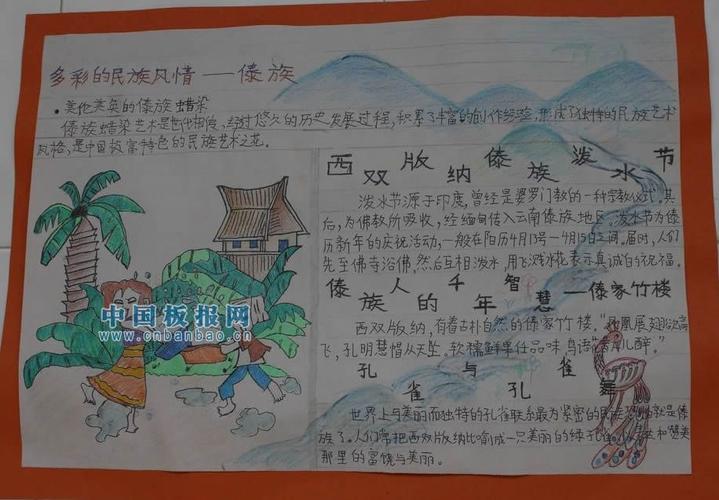 多彩的民族风情——傣族
·美伦美奂的傣族蜡染
傣族蜡染艺术是世代相传,经过悠久的历史发展过程,积累了丰富的创作经验,形成了独特的民族艺术
风格,是中国极富特色的民族艺术之花。
西双版纳傣族泼水节
泼水节源于印度,曾经是婆罗门教的一种宗教仪式。其
后,为佛教所吸收,经缅甸传入云南傣族地区,泼水节为傣
历新年的庆祝活动,一般在阳历4月13号—4月15日之间。届时,人们
先至佛寺浴佛,然后互相泼水,用飞溅水花表示真诚的祝福。
傣族人的千年智慧——傣家竹楼
西双版纳,有着古朴自然的傣家竹楼。"凤凰展翅欲高
飞,孔明慧悟从天坠。软糯鲜果仕品味,鸟语
孔雀与孔雀舞
世界上与美丽而独特的孔雀联系最为紧密的民族 就是傣
族了。人们常把西双版纳比喻成一只美丽的绿孔雀, 和赞美
那里的富饶与美丽。
中国板报网
www.cnbanbao.cn